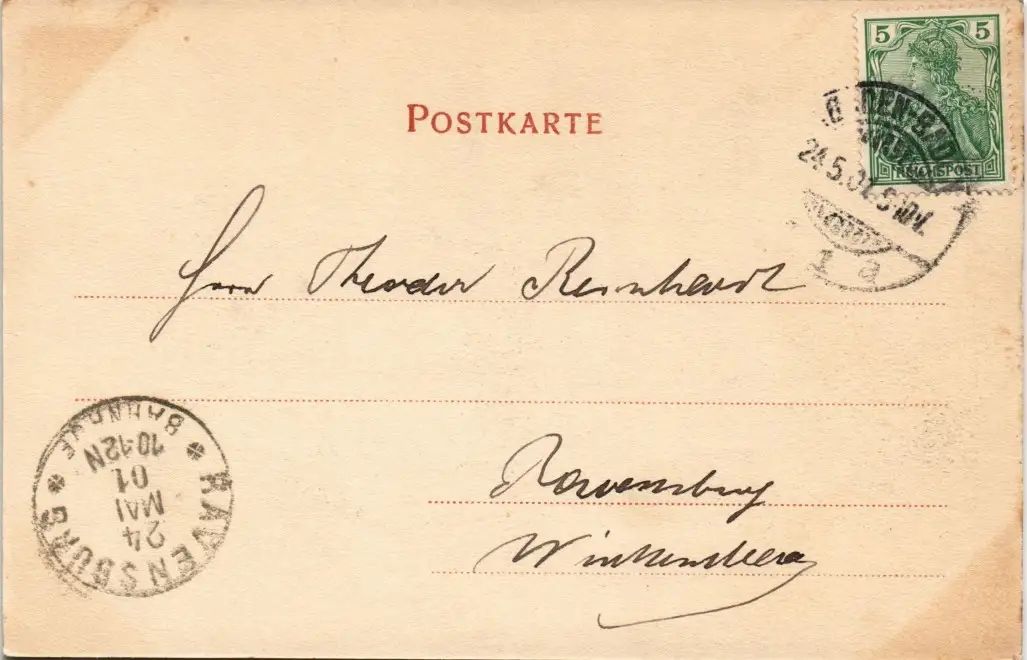 5 5
REICHSPOST
POSTKARTE
24.5.01. 9-10V.
1 a
Herrn Theodor Reinhardt
Ravensburg
Württemberg
RAVENSBURG
24
MAI
01
10-12N
BAHNHOF